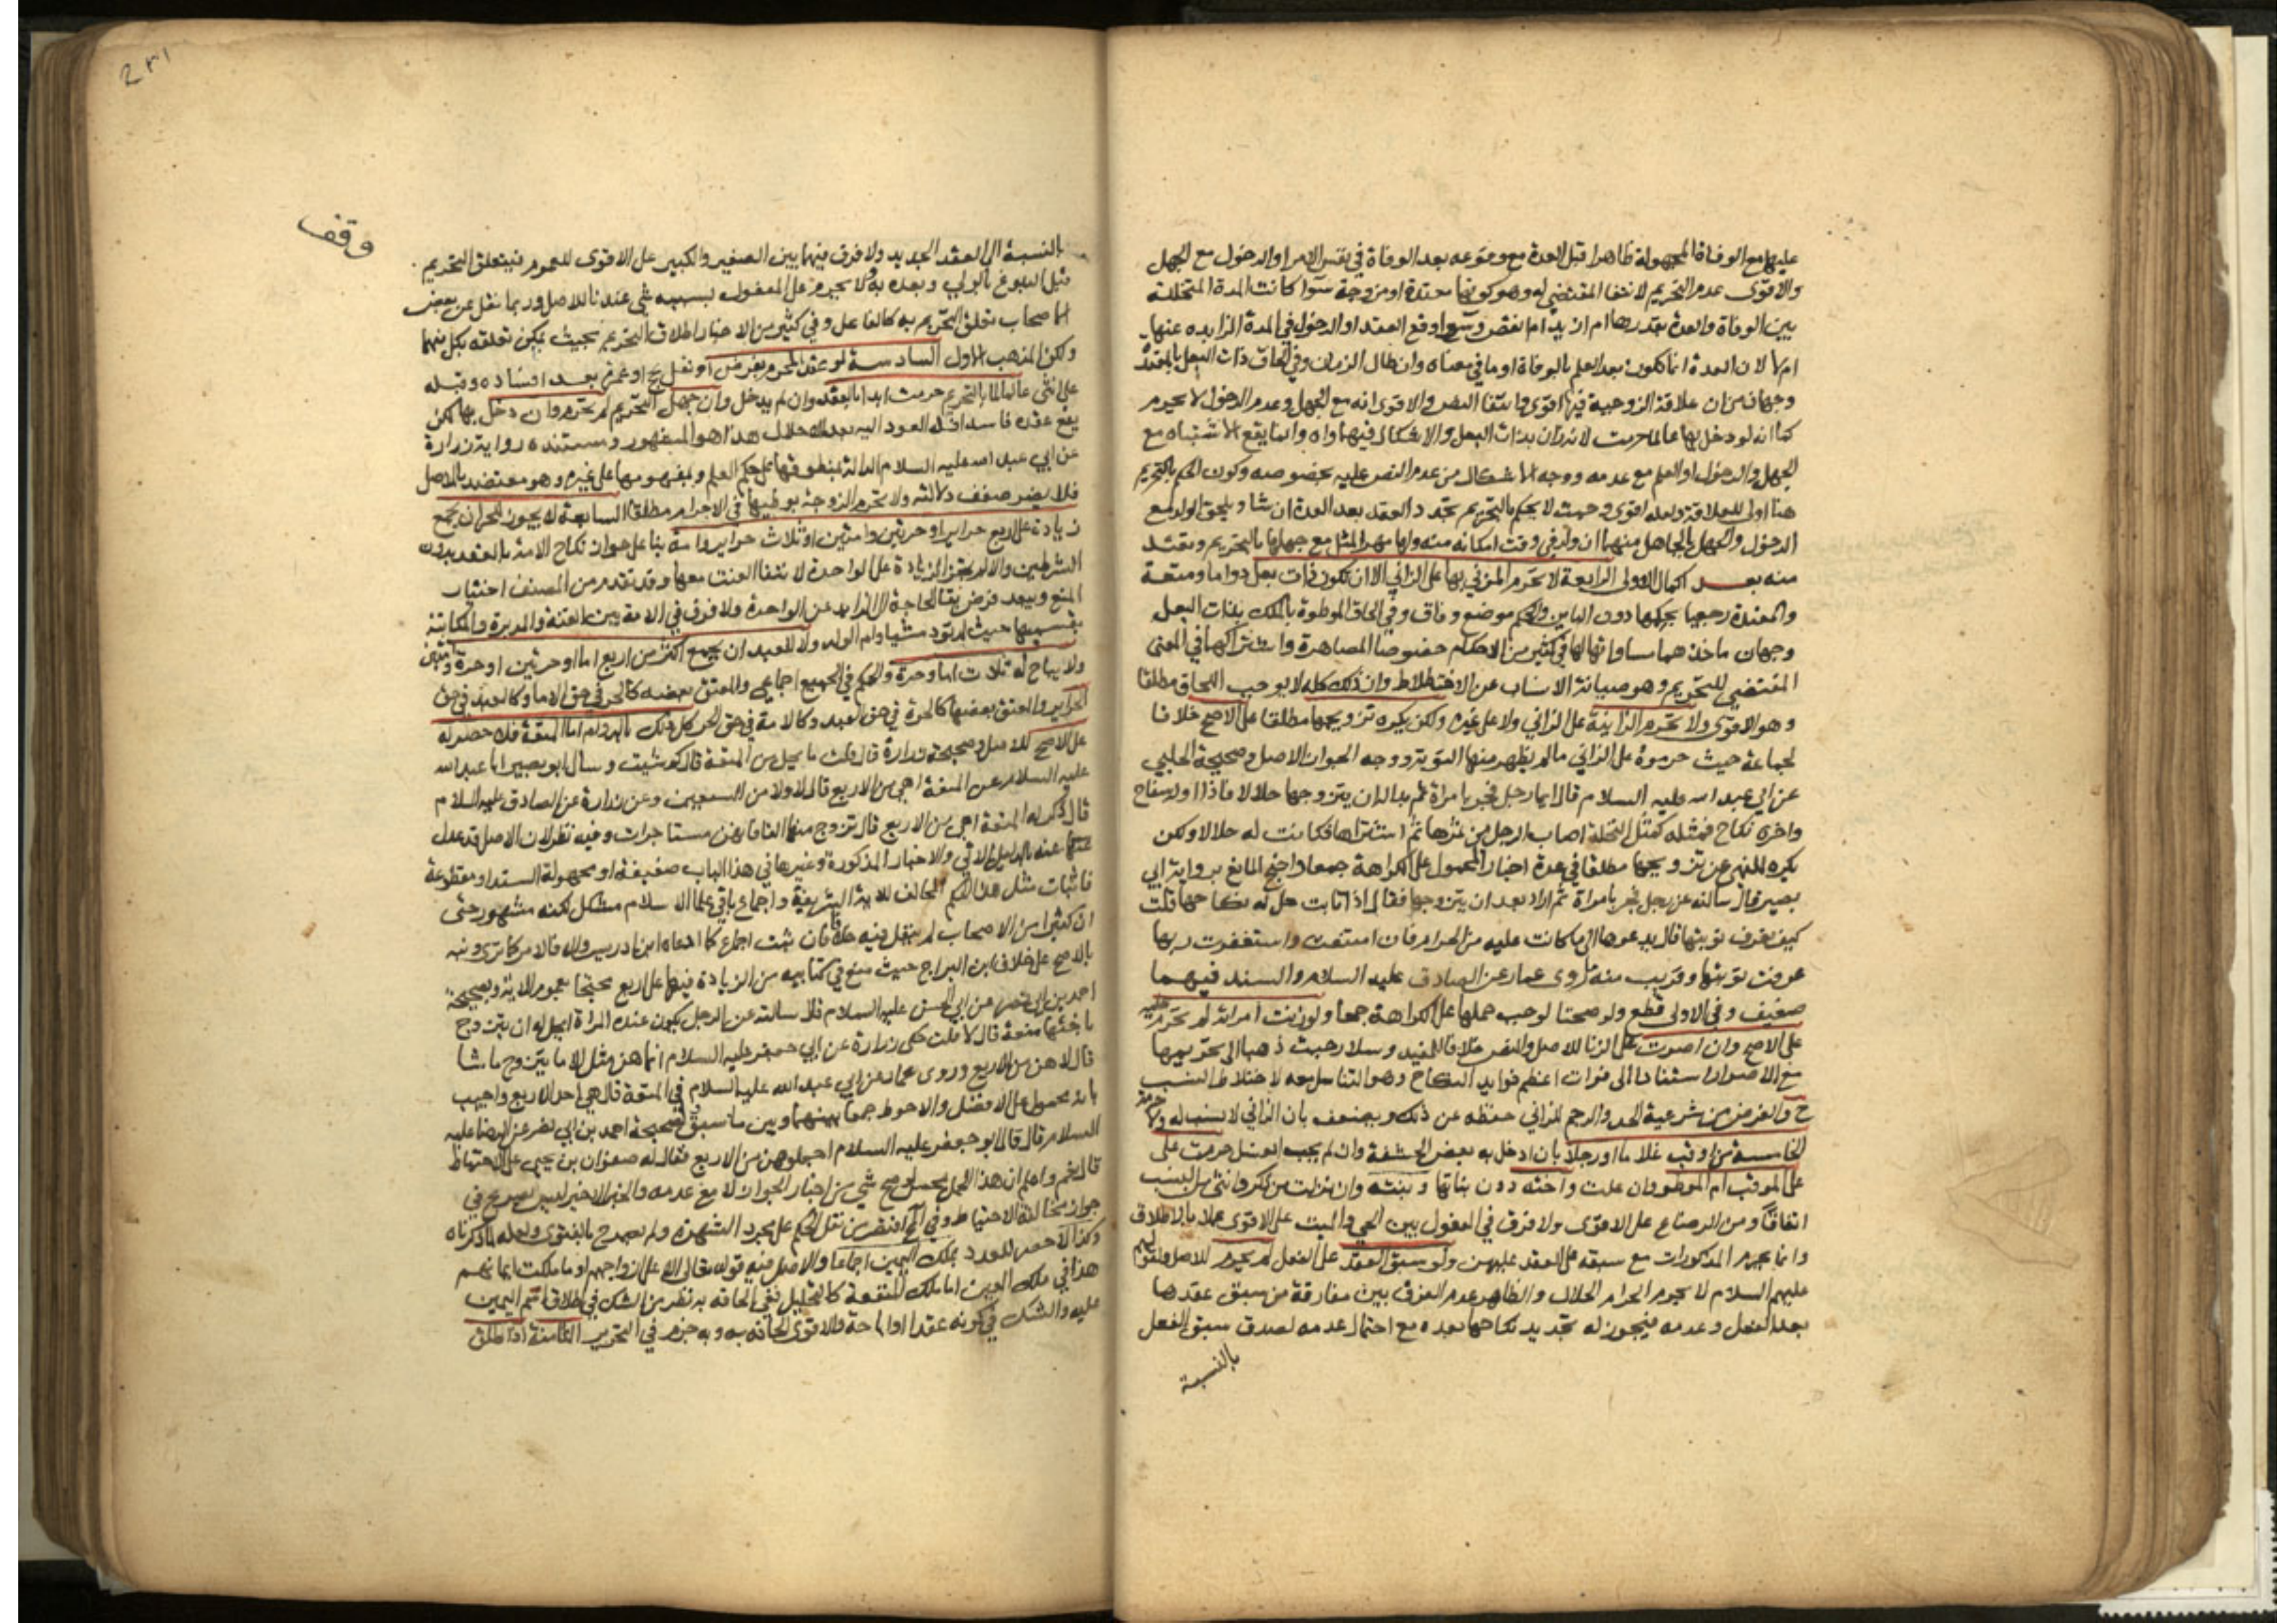 عليها مع الوفاة المجهولة ظاهرا قبل العدة مع وقوعه بعد الوفاة في نفس الامر او الدخول مع الجهل
والاقوى عدم التحريم لانتفا المقتضي له وهو كونها معتدة او مزوجة سوآ كانت المدة المتخللة
بين الوفاة والعدة بقدرها ام ازيد ام انقص وسوآ وقع العقد او الدخول في المدة الزايده عنها
ام لا لان العدة انما تكون بعد العلم بالوفاة او ما في معناه وان طال الزمان وفي الحاق ذات البعل بالمعتدة
وجهان من ان علاقة الزوجية فيها اقوى وانتفا النص والاقوى انه مع الجهل وعدم الدخول لا يحرم
كما انه لو دخل بها عالما حرمت لانه زان بذات البعل والاشكال فيهما واه وانما يقع الاشتباه مع
الجهل والدخول او العلم مع عدمه ووجه الاشكال من عدم النص عليه بخصوصه وكون الحكم بالتحريم
هنا اولى للعلاقة ولعله اقوى وحيث لا يحكم بالتحريم يجدد العقد بعد العدة ان شا ويلحق الولد مع
الدخول والجهل بالجاهل منهما ان ولد في وقت امكانه منه ولها مهر المثل مع جهلها بالتحريم وتعتد
منه بعد اكمال الاولى الرابعة لا تحرم المزني بها على الزاني الا ان تكون ذات بعل دواما ومتعة
والمعتدة رجعيا بحكمها دون الباين والحكم موضع وفاق وفي الحاق الموطوة بالملك بذات البعل
وجهان ماخذهما مساواتها لها في كثير من الاحكام خصوصا المصاهرة واشتراكهما في المعنى
المقتضي للتحريم وهو صيانة الانساب عن الاختلاط وان ذلك كله لا يوجب اللحاق مطلقا
وهو الاقوى ولا تحرم الزانية على الزاني ولا على غيره ولكن يكره تزويجها مطلقا على الاصح خلافا
لجماعة حيث حرموه على الزاني ما لم يظهر منها التوبة ووجه الجواز الاصل وصحيحة الحلبي
عن ابي عبد الله عليه السلام قال ايما رجل فجر بامراة ثم بدا له ان يتزوجها حلالا فاذا اوله سفاح
واخره نكاح فمثله كمثل النخلة اصاب الرجل من ثمرها ثم اشتراها فكانت له حلالا ولكن
يكره للنهي عن تزويجها مطلقا في عدة اخبار المحمول على الكراهة جمعا واحتج المانع برواية ابي
بصير قال سالته عن رجل فجر بامراة ثم اراد بعد ان يتزوجها فقال اذا تابت حل له نكاحها قلت
كيف يعرف توبتها قال يدعوها الى ما كانت عليه من الحرام فان امتنعت واستغفرت ربها
عرفت توبتها وقريب منه ما روى عمار عن الصادق عليه السلام والسند فيهما
ضعيف وفي الاولى قطع ولو صحتا لوجب حملها على الكراهة جمعا ولو زنت امراته لم تحرم عليه
على الاصح وان اصرت على الزنا للاصل والنص خلافا للمفيد وسلار حيث ذهبا الى تحريمها
مع الاصرار استنادا الى فوات اعظم فوايد النكاح وهو التناسل معه لاختلاط النسب
ح والغرض من شرعية الحد والرجم للزاني حفظه عن ذلك ويضعف بان الزاني لا نسب له ولا حرمة
الخامسة من اوقب غلاما او رجلا بان ادخل به بعض الحشفة وان لم يجب الغسل حرمت على
على الموقب ام الموطو وان علت واخته دون بناتها وبنته وان نزلت من ذكر وانثى من النسب
اتفاقا ومن الرضاع على الاقوى ولا فرق في المفعول بين الحي والميت على الاقوى عملا بالاطلاق
وانما يحرم المذكورات مع سبقه على العقد عليهن ولو سبق العقد على الفعل لم يحرم للاصل ولقولهم
عليهم السلام لا يحرم الحرام الحلال والظاهر عدم الفرق بين مفارقة من سبق عقدها
بعد الفعل وعدمه فيجوز له تجديد نكاحها بعده مع احتمال عدمه لصدق سبق الفعل
بالنسبة
وقف
بالنسبة الى العقد الجديد ولا فرق فيهما بين الصغير والكبير على الاقوى للعموم فيتعلق التحريم
قبل البلوغ بالولي وبعده به ولا يحرم على المفعول بسببه شي عندنا للاصل وربما نقل عن بعض
الاصحاب تعلق التحريم به كالفاعل وفي كثير من الاخبار اطلاق التحريم بحيث يمكن تعلقه بكل منهما
ولكن المذهب الاول السادسة لو عقد المحرم بفرض او نفل بحج او عمرة بعد افساده وقبله
على انثى عالما بالتحريم حرمت ابدا بالعقد وان لم يدخل وان جهل التحريم لم تحرم وان دخل بها لكن
يقع عقده فاسدا فله العود اليه بعد الاحلال هذا هو المشهور ومستنده رواية زرارة
عن ابي عبد الله عليه السلام الدالة بمنطوقها على حكم العلم وبمفهومها على غيره وهو معتضد بالاصل
فلا يضر ضعف دلالته ولا تحرم الزوجة بوطيها في الاحرام مطلقا السابعة لا يجوز للحر ان يجمع
زيادة على اربع حراير او حرتين وامتين او ثلاث حراير وامة بنا على جواز نكاح الامة بالعقد بدون
الشرطين والا لم يجز الزيادة على الواحدة لانتفا العنت معها وقد تقدم من المصنف اختيار
المنع ويبعد فرض بقا الحاجة الى الزايد عن الواحدة ولا فرق في الامة بين القنة والمدبرة والمكاتبة
بقسميها حيث لم تود شيئا وام الولد ولا للعبد ان يجمع اكثر من اربع اما او حرتين او حرة وامتين
ولا يباح له ثلاث اما وحرة والحكم في الجميع اجماعي والمعتق بعضه كالحر في حق الاما وكالعبد في حق
الحراير والمعتق بعضها كالحرة في حق العبد وكالامة في حق الحر كل ذلك بالدوام اما المتعة فلا حصر له
على الاصح للاصل وصحيحة زرارة قال قلت ما يحل من المتعة قال كم شيت وسال ابو بصير ابا عبد الله
عليه السلام عن المتعة اهي من الاربع قال لا ولا من السبعين وعن زرارة عن الصادق عليه السلام
قال ذكر له المتعة اهي من الاربع قال تزوج منهن الفا فانهن مستاجرات وفيه نظر لان الاصل قد عدل
عنه بالدليل الاتي والاخبار المذكورة وغيرها في هذا الباب ضعيفة او مجهولة السند او مقطوعة
فاثبات مثل هذا الحكم المخالف للاية الشريفة واجماع باقي علما الاسلام مشكل لكنه مشهور حتى
ان كثيرا من الاصحاب لم ينقل فيه خلافا فان ثبت اجماع كما ادعاه ابن ادريس والا فالامر كما ترى ونبه
بالاصح على خلاف ابن البراج حيث منع في كتابيه من الزيادة فيها على اربع محتجا بعموم الاية وبصحيحة
احمد بن ابي نصر عن ابي الحسن عليه السلام قال سالته عن الرجل يكون عنده المراة ايحل له ان يتزوج
باختها متعة قال لا قلت حكى زرارة عن ابي جعفر عليه السلام انما هن مثل الاما يتزوج ما شا
قال لا هن من الاربع وروى عمار عن ابي عبد الله عليه السلام في المتعة قال هي احد الاربع واجيب
بانه محمول على الافضل والاحوط جمعا بينهما وبين ما سبق لصحيحة احمد بن ابي نصر عن الرضا عليه
السلام قال قال ابو جعفر عليه السلام اجعلوهن من الاربع فقال له صفوان بن يحيى على الاحتياط
قال نعم واعلم ان هذا الحمل يحسن لو صح شي من اخبار الجواز لا مع عدمه والخبر الاخير ليس بصريح في
جواز مخالفة الاحتياط وفي المخ اقتصر من نقل الحكم على مجرد الشهرة ولم يصرح بالفتوى ولعله لما ذكرناه
وكذا لا حصر للعدد بملك اليمين اجماعا والاصل فيه قوله تعالى الا على ازواجهم او ما ملكت ايمانهم
هذا في ملك العين اما ملك المنفعة كالتحليل ففي الحاقه به نظر من الشك في اطلاق اسم اليمين
عليه والشك في كونه عقدا او اباحة والاقوى الحاقه به وبه جزم في التحرير الثامنة اذا طلق